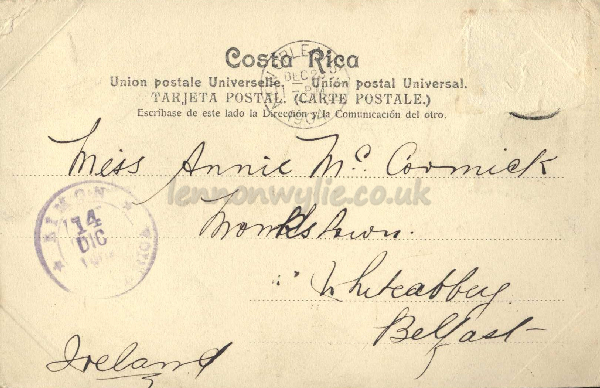 Costa Rica
Union postale Universelle. Unión postal Universal.
TARJETA POSTAL. (CARTE POSTALE.)
Escríbase de este lado la Dirección y la Comunicación del otro.
Miss Annie Mc Cormick
lennonwylie.co.uk
Monkstown.
Whiteabbey
Belfast
Ireland
LIMON
14
DIC
DEC